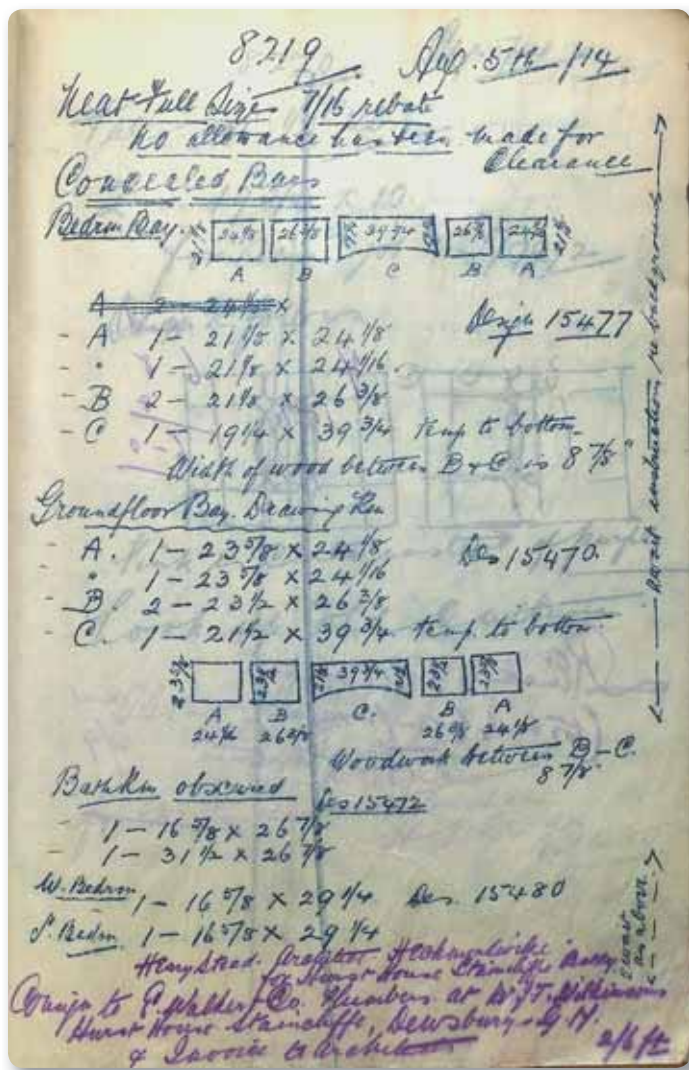 8219 Aug. 5th /14
Neat Full Sizes 7/16 rebate
No allowance has been made for
Clearance
Concealed Bars
Bedrm Bay. 21 1/8 24 1/8 26 3/8 39 3/4 26 3/8 21 1/8
A B C B A
A 2 - 24 1/8 x
- A 1 - 21 1/8 x 24 1/8 Design 15477
- " 1 - 21 1/8 x 24 1/16.
- B 2 - 21 1/8 x 26 3/8
- C 1 - 19 1/4 x 39 3/4 temp to bottom.
Width of wood between B & C. is 8 7/8"
Groundfloor Bay. Drawing Rm
- A. 1 - 23 5/8 x 24 1/8 Des 15470.
" 1 - 23 5/8 x 24 1/16
- B. 2 - 23 1/2 x 26 3/8
- C. 1 - 21 1/2 x 39 3/4 temp. to bottom.
23 5/8 23 1/2 21 1/2 39 3/4 21 1/2 23 1/2 23 5/8
A B C. B A
24 1/16 26 3/8 26 3/8 24 1/8
Woodwork between B - C.
8 7/8"
Bath Rm obscured Des 15472
- 1 - 16 5/8 x 26 7/8
- 1 - 31 1/2 x 26 7/8
W. Bedrm 1 - 16 5/8 x 29 1/4 Des. 15480
S. Bedrm 1 - 16 5/8 x 29 1/4
Await instructions re backgrounds
Await as above
Henry Stead. Architect Heckmondwike
for Hurst House Staincliffe Batley
Consign to P. Walker & Co. Plumbers at W. T. Wilkinsons
Hurst House Staincliffe, Dewsbury - G. N.
& Invoice to Architect 2/6 ft